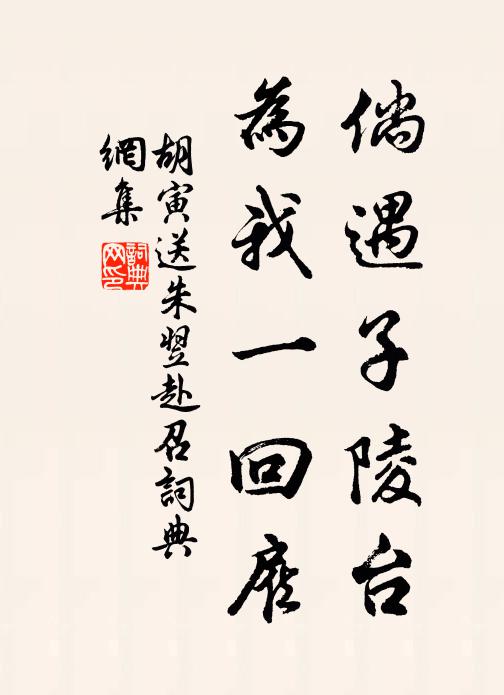 倘遇子陵台
為我一回
胡寅送朱翌赴召詞典
網集
詞典網印